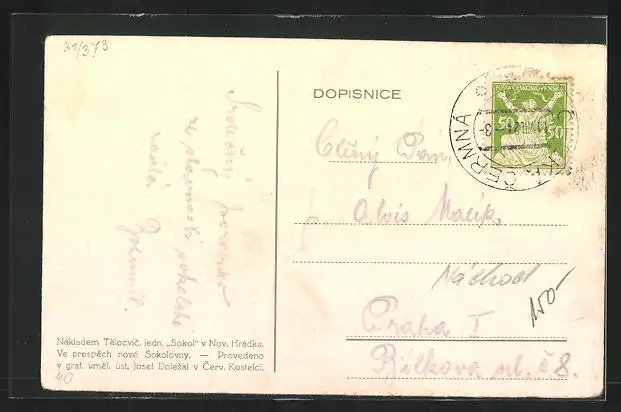 31/373
DOPISNICE
POŠTA ČESKOSLOVENSKÁ
50 50
ČERMNÁ
Srdečný pozdrav
ze slavnosti sokolské
Ctěný Pán
Alois Macík
Náchod
150-
Praha I
Bílkova ul. č 8.
Nákladem Tělocvič. jedn. „Sokol" v Nov. Hrádku.
Ve prospěch nové Sokolovny. — Provedeno
v graf. uměl. úst. Josef Doležal v Červ. Kostelci.
40